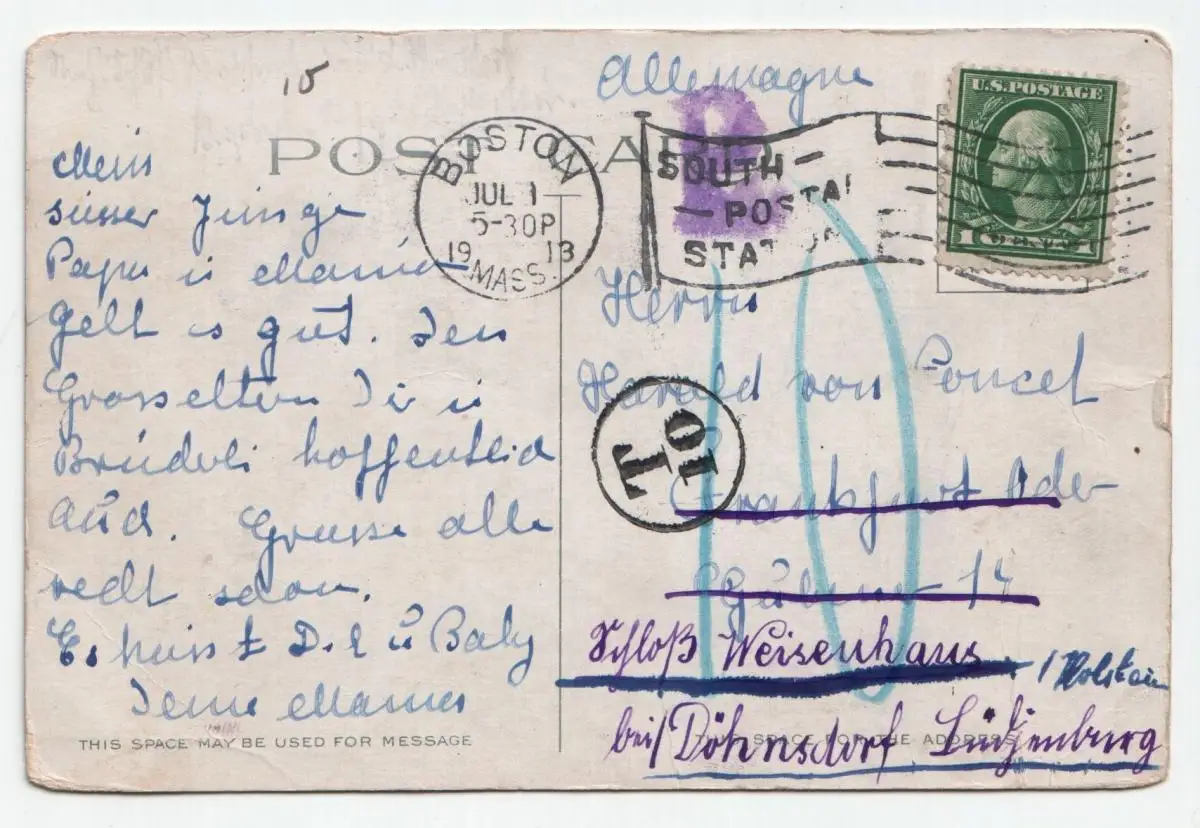 15
Allemagne
POST CARD
BOSTON
JUL 1
5-30P
19 13
MASS.
SOUTH
POSTAL
STATION
U.S. POSTAGE
Mein
süsser Junge
Papa u Mama
geht es gut. Den
Grosseltern Dir u
Brüderli hoffentlich
auch. Grüsse alle
recht schön.
Es küsst D. u Baby
Deine Mama
Herrn
Harald von Poncet
T 10
10
Frankfurt Oder
Gubener 14
Schloß Weisenhaus
/Holstein
bei/ Döhnsdorf Lütjenburg
THIS SPACE MAY BE USED FOR MESSAGE
THIS SPACE FOR THE ADDRESS